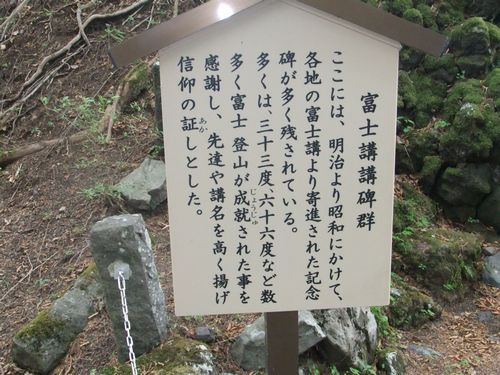 富士講講碑群
ここには、明治より昭和にかけて、
各地の富士講より寄進された記念
碑が多く残されている。
多くは、三十三度、六十六度など数
多く富士登山が成就された事を
じょうじゅ
感謝し、先達や講名を高く揚げ
信仰の証しとした。
あか